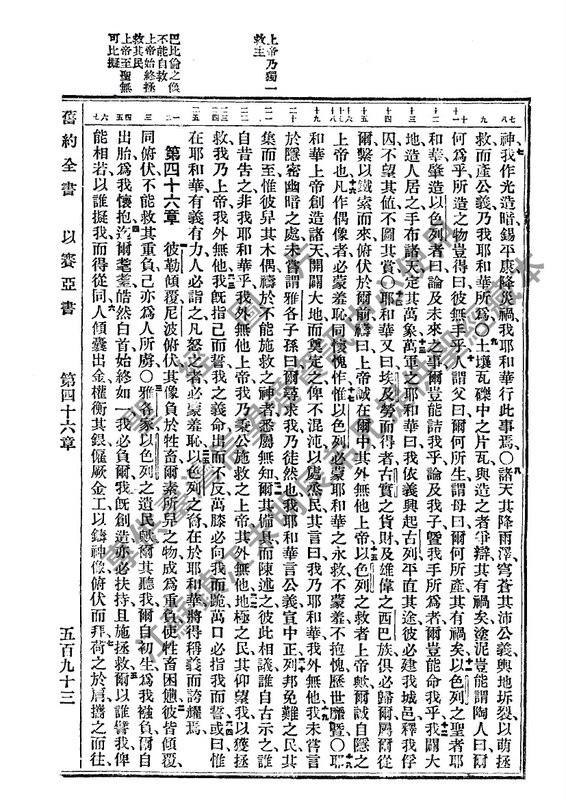 上帝乃獨一
救主
巴比倫之像
不能自救
上帝始終拯
救其民
上帝至聖無
可比擬
神我作光造暗錫平康降災禍我耶和華行此事焉○諸天其降雨澤穹蒼其沛公義輿地坼裂以萌拯
救而產公義乃我耶和華所爲○土壤瓦礫中之片瓦與造之者爭辯其有禍矣塗泥豈能謂陶人曰爾
何爲乎所造之物豈得曰彼無手乎人謂父曰爾何所生謂母曰爾何所產其有禍矣以色列之聖者耶
和華肇造以色列者曰論及未來之事爾豈能詰我乎論及我子曁我手所爲者爾豈能命我乎我闢大
地造人居之手布諸天定其萬象萬軍之耶和華曰我依義興起古列平直其途彼必建我城邑釋我俘
囚不望其値不圖其賞○耶和華又曰埃及勞而得者古實之貨財及雄偉之西巴族俱必歸爾屬爾從
爾繫以鐵索而來俯伏於爾前禱曰上帝誠在爾中其外無他上帝以色列之救者上帝歟爾誠自隱之
上帝也凡作偶像者必蒙羞恥同懷愧怍惟以色列必蒙耶和華之永救不蒙羞不抱愧歷世靡曁○耶
和華上帝創造諸天開闢大地而奠定之俾不混沌以處烝民其言曰我乃耶和華我外無他我未嘗言
於隱密幽暗之處未嘗謂雅各子孫曰爾尋求我乃徒然也我耶和華言公義宣中正列邦免難之民其
集而至惟彼舁其木偶禱於不能施救之神者悉屬無知爾其佈吿而陳述之彼此相議誰自古示之誰
自昔吿之非我耶和華乎我外無他上帝我乃秉公施救之上帝其外無他地極之民其仰望我以獲拯
救我乃上帝我外無他我旣指己而誓我之義命出而不反萬膝必向我而跪萬口必指我而誓或曰惟
在耶和華有義有力人必詣之凡怒之者必蒙羞恥以色列之裔在於耶和華將得稱義而誇耀焉
第四十六章 彼勒傾覆尼波俯伏其像負於牲畜爾素所舁之物成爲重負使牲畜困憊彼皆傾覆
同俯伏不能救其重負己亦爲人所虜○雅各家以色列之遺民歟爾其聽我爾自初生爲我襁負爾自
出胎爲我懷抱迄爾耄耋皓然白首始終如一我必負爾我旣創造亦必扶持且施拯救爾以誰譬我俾
能相若以誰擬我而得從同人傾囊出金權衡其銀僱厥金工以鑄神像俯伏而拜荷之於肩攜之而往
舊約全書 以賽亞書 第四十六章 五百九十三